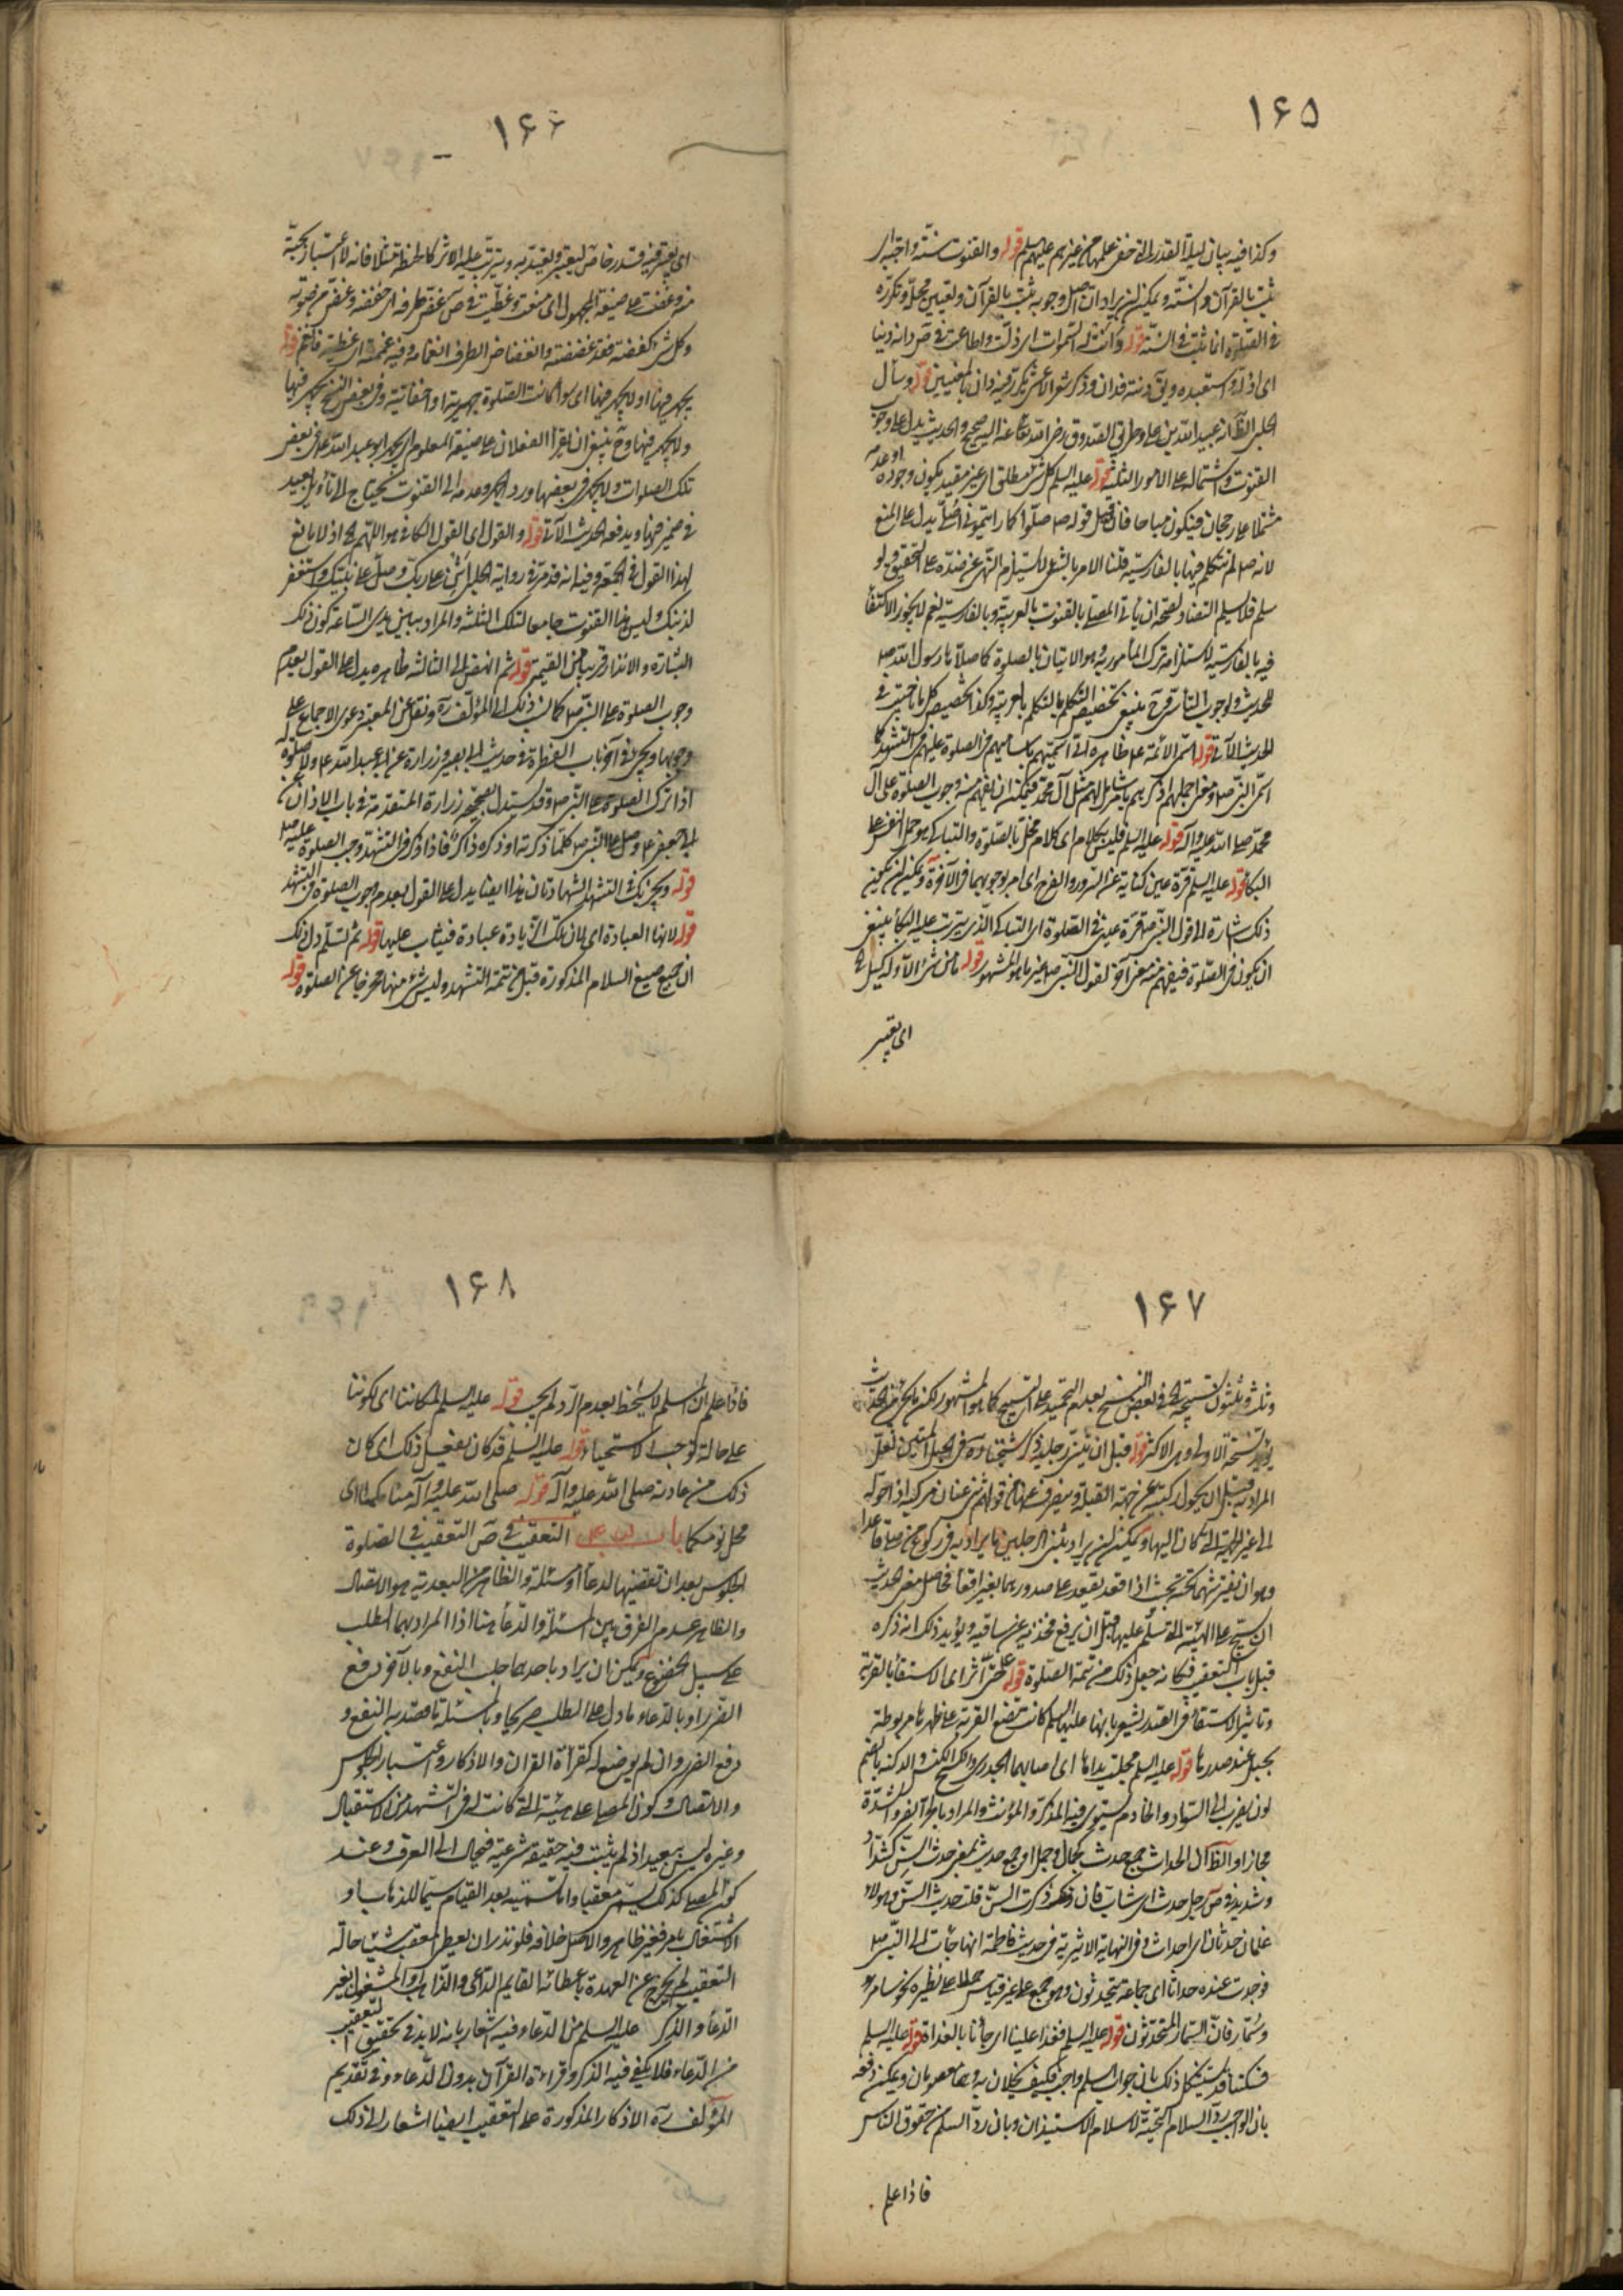 ١٦٥
وكذا فيه بيان ليلة القدر التى خفى علمها عن غيرهم عليهم السلم قوله والقنوت سنّة واجبة اى
ثبت بالقرآن والسنّة ويمكن ان يراد ان اصل وجوبه ثبت بالقرآن وتعيين محلّه وتكرّره
فى الصّلوة انما ثبت فى السنّة قوله وذانت له السّموات اى ذلّت واطاعت فى ص دانه دينا
اى اذلّه واستعبده ويق دنته فدان وذكر شعر الاعشى تكرّر فيه دان بالمعنيين قوله وسأل
الحلبى الظّ انه عبيد الله بن على وطريق الصّدوق رضى الله تعالى عنه اليه صحيح والحديث يدل على وجوب
القنوت واشتماله على الامور الثلثة قوله عليه السلم كل شئ مطلق اى غير مقيد بكون وجوده او عدمه
مشتملا على رجحان فيكون مباحا فان قيل قوله ص صلّوا كما رايتمونى اصلّى يدل على المنع
لانه ص لم يتكلم فيها بالفارسيّة قلنا الامر بالشئ لا يستلزم النّهى عن ضدّه على التحقيق ولو
سلم فلا يسلم التضاد لصحة ان يأتى المصلى بالقنوت بالعربيّة وبالفارسيّة نعم لا يجوز الاكتفاء
فيه بالفارسيّة لاستلزامه ترك المأمور به وهو الاتيان بالصلوة كما صلّاها رسول الله ص
للحديث ولوجوب التأسّى فح ينبغى تخصيص التكلم بالتكلم بالعربيّة وكذا تخصيص كل ما ناجيت فى
الحديث الآتى قوله اسمّى الائمة ع ظاهره انّى اسمّيهم باساميهم فى الصلوة عليهم فى التشهد كما
اسمّى النبى ص ومعنى اجملهم اذكرهم بما يشملهم مثل آل محمد فيمكن ان يفهم منه وجوب الصلوة على آل
محمّد صلى الله عليه وآله قوله عليه السلم فليس بكلام اى كلام مخلّ بالصلوة والتباكى هو حمل النفس على
البكاء قوله عليه السلم قرة عين كناية عن السّرور والفرح اى امر يوجبهما فى الآخرة ويمكن ان يكون
ذلك اشارة الى قول النبى ص قرّة عينى فى الصّلوة اى التباكى الّذى يترتب عليه البكاء ينبغى
ان يكون فى الصّلوة فيفهم منه معنى آخر لقول النبى ص غير ما هو المشهور قوله ما من شئ الا وله كيل الخ
اى يعتبر
١٦٦
اى يعتبر فيه قدر خاص ليعتبر ويعتد به ويترتّب عليه الاثر كالحنطة مثلا فانه لا اعتبار بحبّة
منه وغضّت على صيغة المجهول اى منعت وغطّيت فى ص غضّ طرفه اى خفضه وغضّ من صوته
وكل شئ كففته فقد غضضته وانغضاض الطرف انغماضه وفيه غممته اى غطيته فانغم قوله
يجهر فيها او لا يجهر فيها اى سواء كانت الصّلوة جهرية او اخفاتية وفى بعض النسخ يجهر فيها
ولا يجهر فيها وح ينبغى ان يقرأ الفعلان على صيغة المعلوم اى يجهر ابو عبد الله ع فى بعض
تلك الصلوات ولا يجهر فى بعضها ورد الجهر وعدمه الى القنوت يحتاج الى تأويل بعيد
فى ضمير فيها ويدفعه الحديث الآتى قوله والقول اى القول الكافى هو اللهم الخ اذ لا مانع
لهذا القول فى الجمعة وفيه انه قد مرّ فى رواية الحلبى اثن على ربّك وصلّ على نبيّك واستغفر
لذنبك وليس هذا القنوت جامعا لتلك الثلثة والمراد ببين يدى السّاعة كون ذلك
البشارة والانذار قريبا من القيمة قوله ثم انهض الى الثالثة ظاهره يدل على القول بعدم
وجوب الصلوة على النبى ص كما نسب ذلك الى المؤلف ره ونقل عن المعتبر دعوى الاجماع على
وجوبها ويجئ فى آخر باب الفطرة فى حديث ابى بصير وزرارة عن ابى عبد الله ع ولا صلوة له
اذا ترك الصلوة على النبى ص وقد يستدل بصحيحة زرارة المتقدمة فى باب الاذان عن
ابى جعفر ع وصلّ على النبى ص كلّما ذكرته او ذكره ذاكر فاذا ذكر فى التشهد وجب الصلوة عليه ص
قوله ويجزيك فى التشهد الشهادتان هذا ايضا يدل على القول بعدم وجوب الصلوة فى التشهد
قوله لانها العبادة اى لان تلك الزّيادة عبادة فيثاب عليها قوله ثم تسلّم دل ذلك
ان جميع صيغ السلام المذكورة قبل من تتمة التشهد وليس شئ منها مخرجا عن الصلوة قوله
١٦٧
يؤيد النسخة الاولى وهى الاكثر قوله قبل ان يثنى رجليه ذكر شيخنا ره فى الحبل المتين لعلّ
المراد به قبل ان يحول ركبتيه عن جهة القبلة وينصرف عنها من قولهم ثنى عنان مركبه اذا حوّله
الى غير الجهة التى كان اليها ويمكن ان يراد بثنى الرجلين ما يراد به فى ركوع من صلى قاعدا
وهو ان يفترشهما تحته بحيث اذا قعد يقعد على صدورهما بغير اقعاء فحاصل معنى الحديث
ان يسبّح على الهيئة التى تسلّم عليها قبل ان يرفع فخذيه عن ساقيه ويؤيد ذلك انه ذكره
قبل باب التعقيب فكانه جعل ذلك من تتمة الصّلوة قوله حتى اثّر اى الاستقاء بالقربة
وتاثير الاستقاء فى الصّدر يشعر بانها عليها السلم كانت تضع القربة على ظهرها مربوطة
بحبل عند صدرها قوله عليه السلم مجلت يداها اى اصابهما الجدرى والكسح الكنس والدكنة بالضم
لون يضرب الى السّواد والخادم يستوى فيه المذكّر والمؤنث والمراد بالحرّ الضر والشدّة
مجازا والظّ ان الحداث جمع حدث كجمال وجمل او جمع حديث بمعنى حدث السّنّ كشداد
وشديد فى ص رجل حدث اى شابّ فان ذكرت السنّ قلت حديث السنّ وهؤلاء
غلمان حدثان اى احداث وفى النهاية الاثيرية فى حديث فاطمة انها جاءت الى النبى ص
فوجدت عنده حداثا اى جماعة يتحدثون وهو جمع على غير قياس حملا على نظيره نحو سامر
وسمّار فانّ السّمار المتحدّثون قوله عليه السلم فغدا علينا اى جاءنا بالغداة قوله عليه السلم
فسكتنا قد يستشكل ذلك بان جواب السلم واجب فكيف يخلان به وهما معصومان ويمكن دفعه
بان الواجب ردّ السلام التحيّة لا سلام الاستيذان وبان ردّ السلم من حقوق الناس
فاذا علم
١٦٨
فاذا علم ان المسلم لا يسخط بعدم الرّد لم يجب قوله عليه السلم لمكاننا اى لكوننا
على حالة توجب الاستحياء قوله عليه السلم قد كان يفعل ذلك اى كان
ذلك من عادته صلى الله عليه وآله قوله صلى الله عليه وآله منامكما اى
محل نومكما باب التعقيب فى ص التعقيب فى الصّلوة
الجلوس بعد ان تقضيها لدعاء او مسئلة والظاهر من البعدية هو الاتصال
والظاهر عدم الفرق بين المسئلة والدّعاء هنا اذ المراد بهما الطلب
على سبيل الخضوع ويمكن ان يراد باحدهما جلب النفع وبالآخر دفع
الضّرر او بالدّعاء ما دل على الطلب صريحا وبالمسئلة ما قصد به النفع و
دفع الضرر وان لم يوضع له كقراءة القران والاذكار واعتبار الجلوس
والاتصال وكون المصلى على هيئة التى كانت له فى التشهد من الاستقبال
وغيره ليس ببعيد اذ لم يثبت فيه حقيقة شرعية فيحال الى العرف وعند
كون المصلى كذلك يسمّى معقبا واما تسميته بعد القيام سيما للذهاب او
الاشتغال بامر فغير ظاهر والاصل خلافه فلو نذر ان يعطى المعقب شيئا حالة
التعقيب لم يخرج عن العهدة باعطائه القايم الدّاعى والذّاهب والمشتغل بغير
الدّعاء والذّكر عليه السلم من الدّعاء وفيه اشعار بانه لا بد فى تحقيق التعقيب
من الدّعاء فلا يكفى فيه الذكر وقراءة القرآن بدون الدّعاء وفى تقديم
المؤلف ره الاذكار المذكورة على التعقيب ايضا اشعار الى ذلك